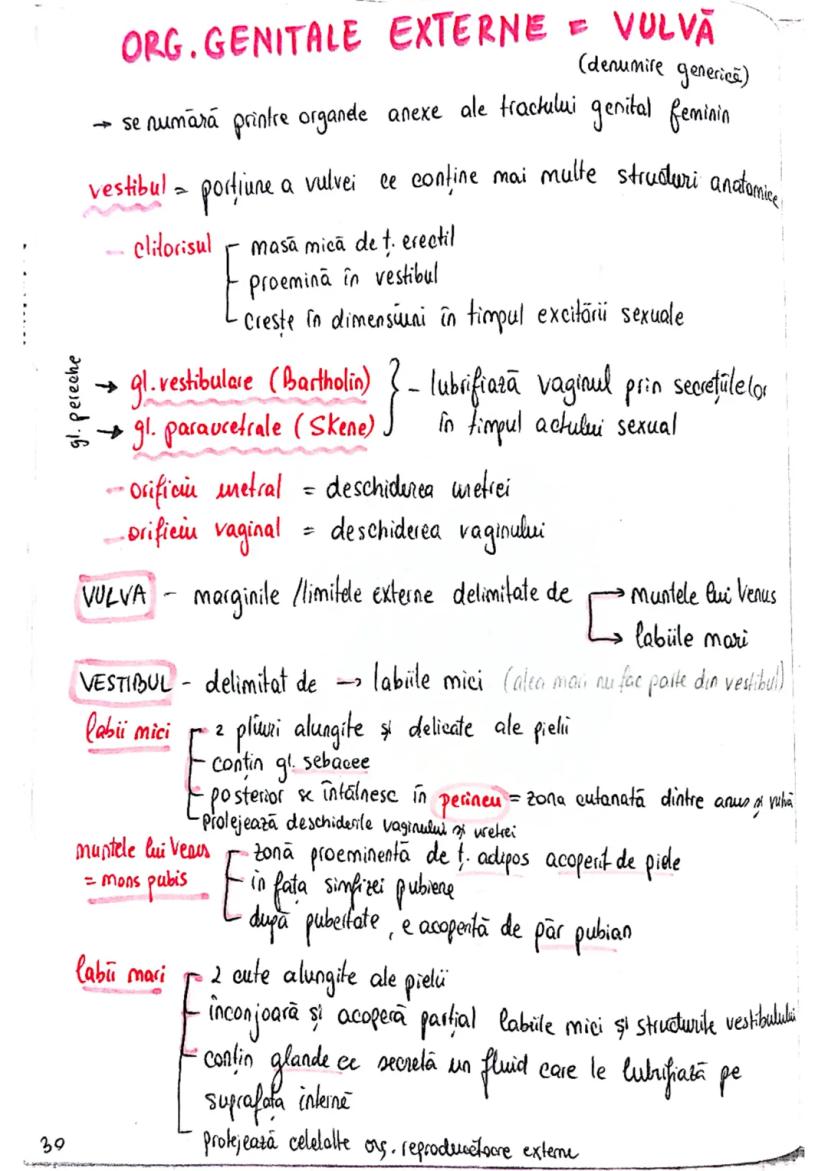 ORG. GENITALE EXTERNE = VULVĂ
(denumire generică)
→ se numără printre organde anexe ale tractului genital feminin
vestibul = porțiune a vulvei ce conține mai multe structuri anatomice
- clitorisul
masă mică de ț. erectil
proemină în vestibul
crește în dimensiuni în timpul excitării sexuale
gl. pereche
→ gl. vestibulare (Bartholin)
→ gl. parauretrale (Skene)
- lubrifiază vaginul prin secrețiile lor
în timpul actului sexual
- orificiu uretral = deschiderea uretrei
- orificiu vaginal = deschiderea vaginului
VULVA - marginile /limitele externe delimitate de → muntele lui Venus
→ labiile mari
VESTIBUL - delimitat de → labiile mici (alea mari nu fac parte din vestibul)
labii mici
2 pliuri alungite și delicate ale pielii
conțin gl. sebacee
posterior se întâlnesc în perineu = zona cutanată dintre anus și vulvă
protejează deschiderile vaginului și uretrei
muntele lui Venus
= mons pubis
zonă proeminentă de ț. adipos acoperit de piele
în fața simfizei pubiene
după pubertate, e acoperită de păr pubian
labii mari
2 cute alungite ale pielii
înconjoară și acoperă parțial labiile mici și structurile vestibulului
conțin glande ce secretă un fluid care le lubrifiază pe
suprafața internă
protejează celelalte org. reproducătoare externe
39